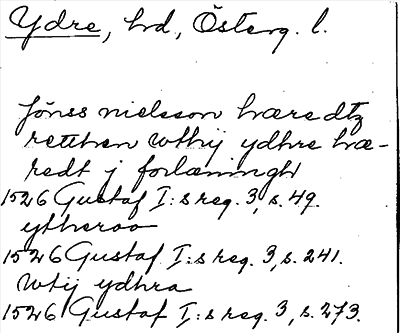 Ydre, hd, Österg. l.
Jönss nielsson hæredtz
retthen wthij ydhre hæ-
redt j forlæningh
1526 Gustaf I:s reg. 3, s. 49.
ytheraa
1526 Gustaf I:s reg. 3, s. 241.
wtij ydhra
1526 Gustaf I:s reg. 3, s. 273.